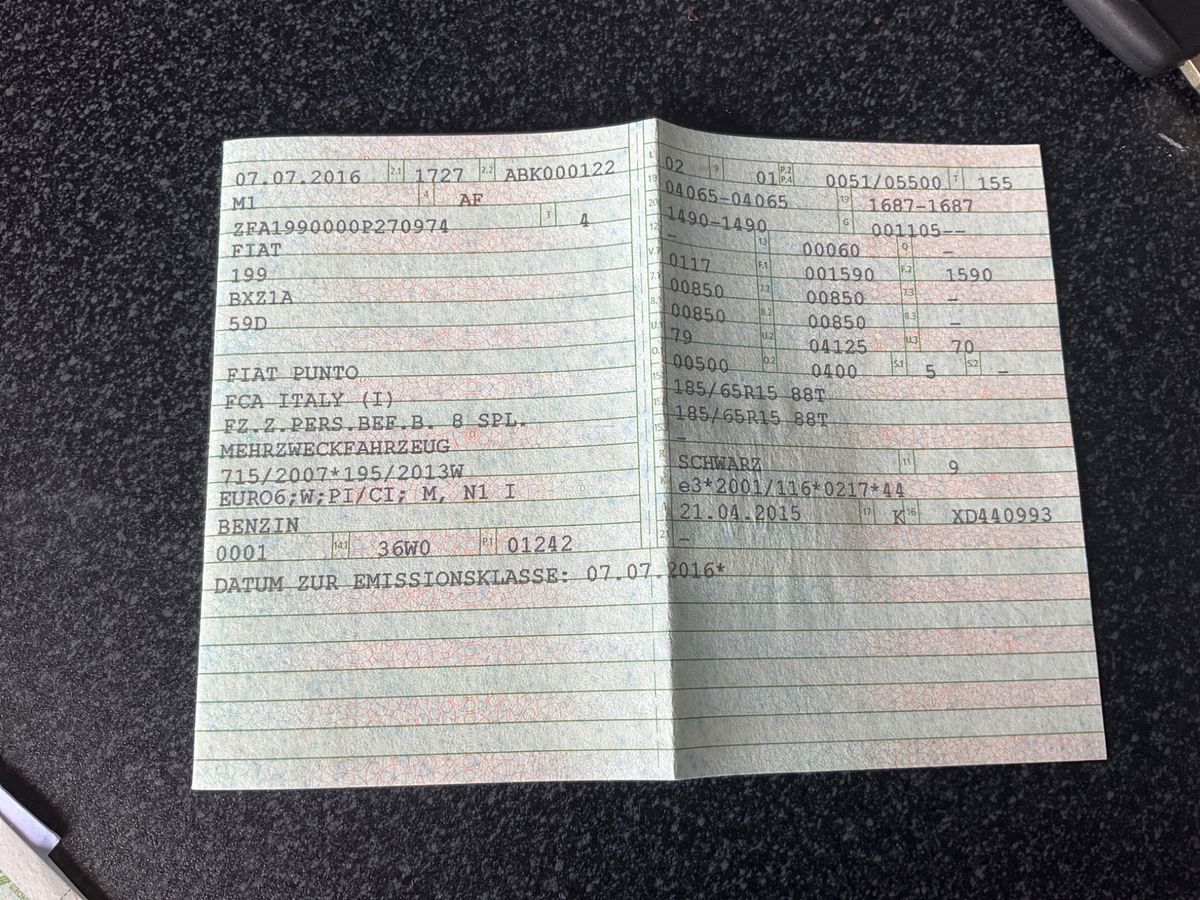 07.07.2016 2.1 1727 2.2 ABK000122
M1 4 AF
ZFA1990000P270974 3 4
FIAT
199
BXZ1A
59D
FIAT PUNTO
FCA ITALY (I)
FZ.Z.PERS.BEF.B. 8 SPL.
MEHRZWECKFAHRZEUG
715/2007*195/2013W
EURO6;W;PI/CI; M, N1 I
BENZIN
0001 14.1 36W0 P.1 01242
DATUM ZUR EMISSIONSKLASSE: 07.07.2016*
L 02 9 01 P.2 P.4 0051/05500 T 155
18 04065-04065 19 1687-1687
20 1490-1490 G 001105--
12 - 13 00060 Q -
V.7 0117 F.1 001590 F.2 1590
7.1 00850 7.2 00850 7.3 -
8.1 00850 8.2 00850 8.3 -
U.1 79 U.2 04125 U.3 70
O.1 00500 O.2 0400 S.1 5 S.2 -
15 185/65R15 88T
15 185/65R15 88T
15 -
R SCHWARZ 11 9
K e3*2001/116*0217*44
21.04.2015 17 K 16 XD440993
21 -